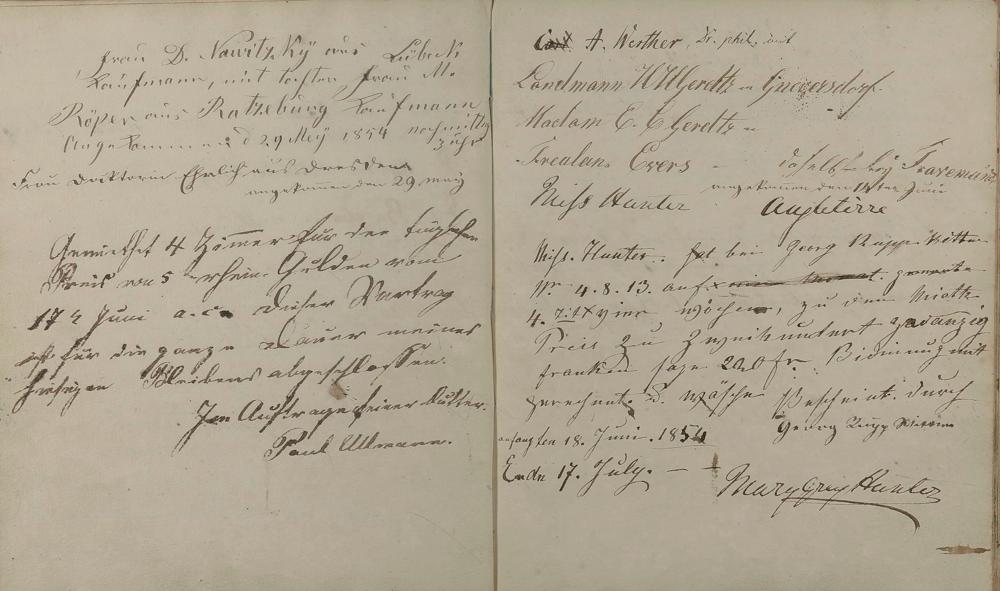 Frau D. Nawitzky aus Lübeck
Kaufmann, mit Frau M.
Röper aus Ratzeburg Kaufmann
Angekommen d 29 Mey 1854 nachmittag
3 Uhr
Frau Doktorin Ehrlich aus Dresden
angekomen den 29 may
Gemiethet 4 Zimmer für den täglichen
Preis von 5 rhein. Gulden vom
17 Juni a.c. Dieser Vartrag
ist für die ganze Dauer meines
hiesigen Bleibens abgeschlossen.
Im Auftrage seiner Mutter.
Paul Ullmann.
A. Werther, Dr. phil. mit
Landmann W H Gerdtz Gneversdorf.
Madam E. C Gerdtz
Freulein Evers daselbst bey Travemünde
angekomen den 14ten Juni
Miss Hunter Angleterre
Miss. Hunter. hat bei Georg Rupp
Nr. 4. 8. 13. auf
4. vier wöchen, zu dem Mieth
Preis zu Zweihundert zwanzig
franken sage 220 fr. Bidinung mit
gerechnet. u. Wäsche Bescheint. durch
Georg Rupp
anfang ten 18. Juni. 1854
Ende 17. July.
Mary Grey Hunter